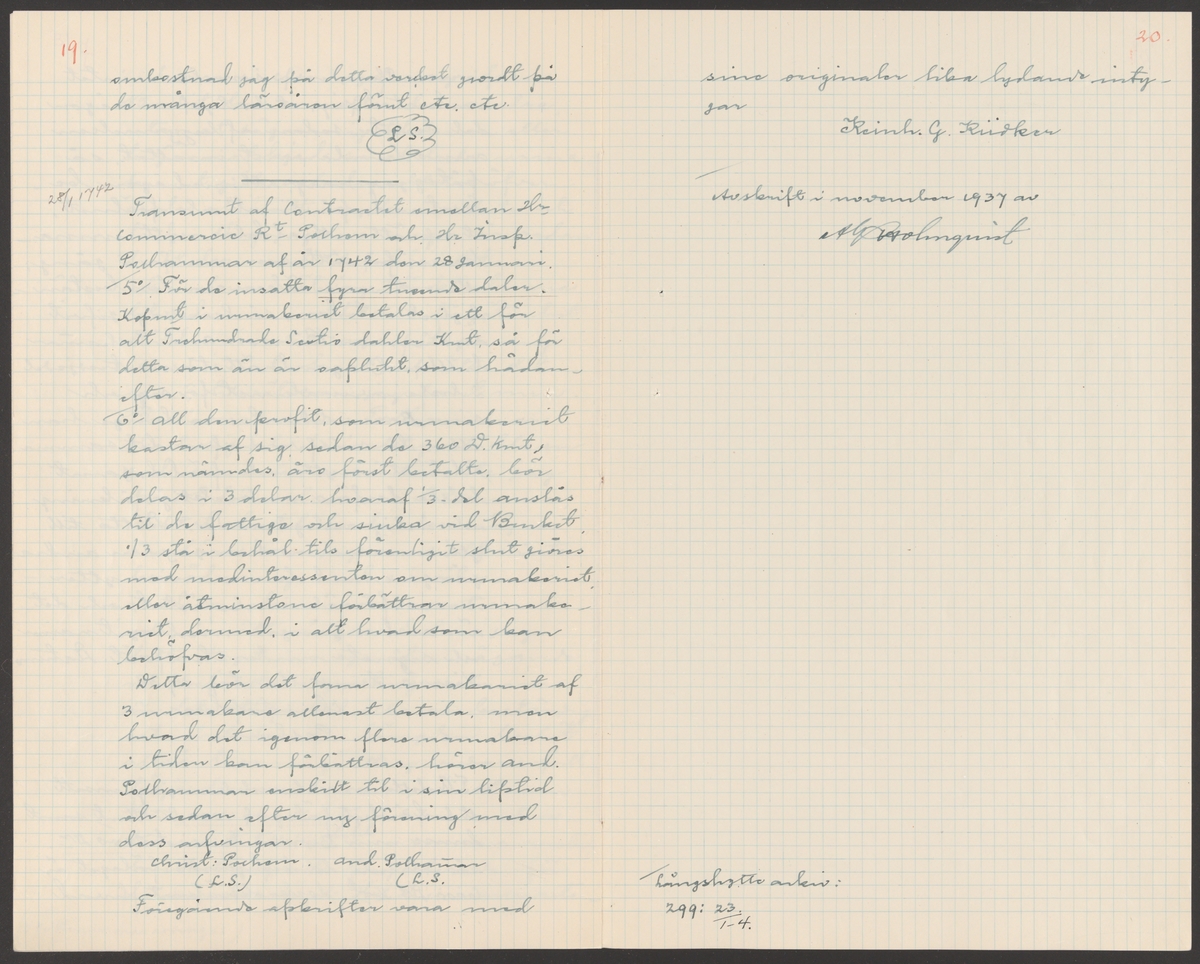 19.
omkostnad jag på detta verket giordt på
de många läroåren förut etc. etc.
L.S.
28/1 1742
Transumt af Contractet emellan Hr
Commercie Rt Polhem och Hr Insp.
Polhammar af år 1742 den 28 Januari.
5o/ För de insatta fyra tusende daler.
Kopmt i urmakeriet betalas i ett för
alt Trehundrade Sextio dahler Kmt, så för
detta som än är oaflicht, som hädan-
efter.
6o/ All den profit, som urmakeriet
kastar af sig, sedan de 360 D. Kmt,
som nämndes, äro först betalte, bör
delas i 3 delar, hvaraf 1/3-del anslås
til de fattige och siuka vid Bruket,
1/3 stå i behål tils förenligit slut giöres
med medinteressenten om urmakeriet,
eller åtminstone förbättrar urmake-
riet, dermed, i alt hvad som kan
behöfvas.
Detta bör det forna urmakeriet af
3 urmakare allenast betala, men
hvad det igenom flere urmakare
i tiden kan förbättras, hörer And.
Polhammar enskilt til i sin lifstid
och sedan efter ny förening med
dess arfvingar.
Christ: Polhem. And. Polhamar
(L.S.) (L.S.
Föregående afskrifter vara med
20.
sine originaler lika lydande inty-
gar
Reinh. G. Rüdker
Avskrift i november 1937 av
Alf Holmquist
Långshytte arkiv:
299: 23.
1-4.